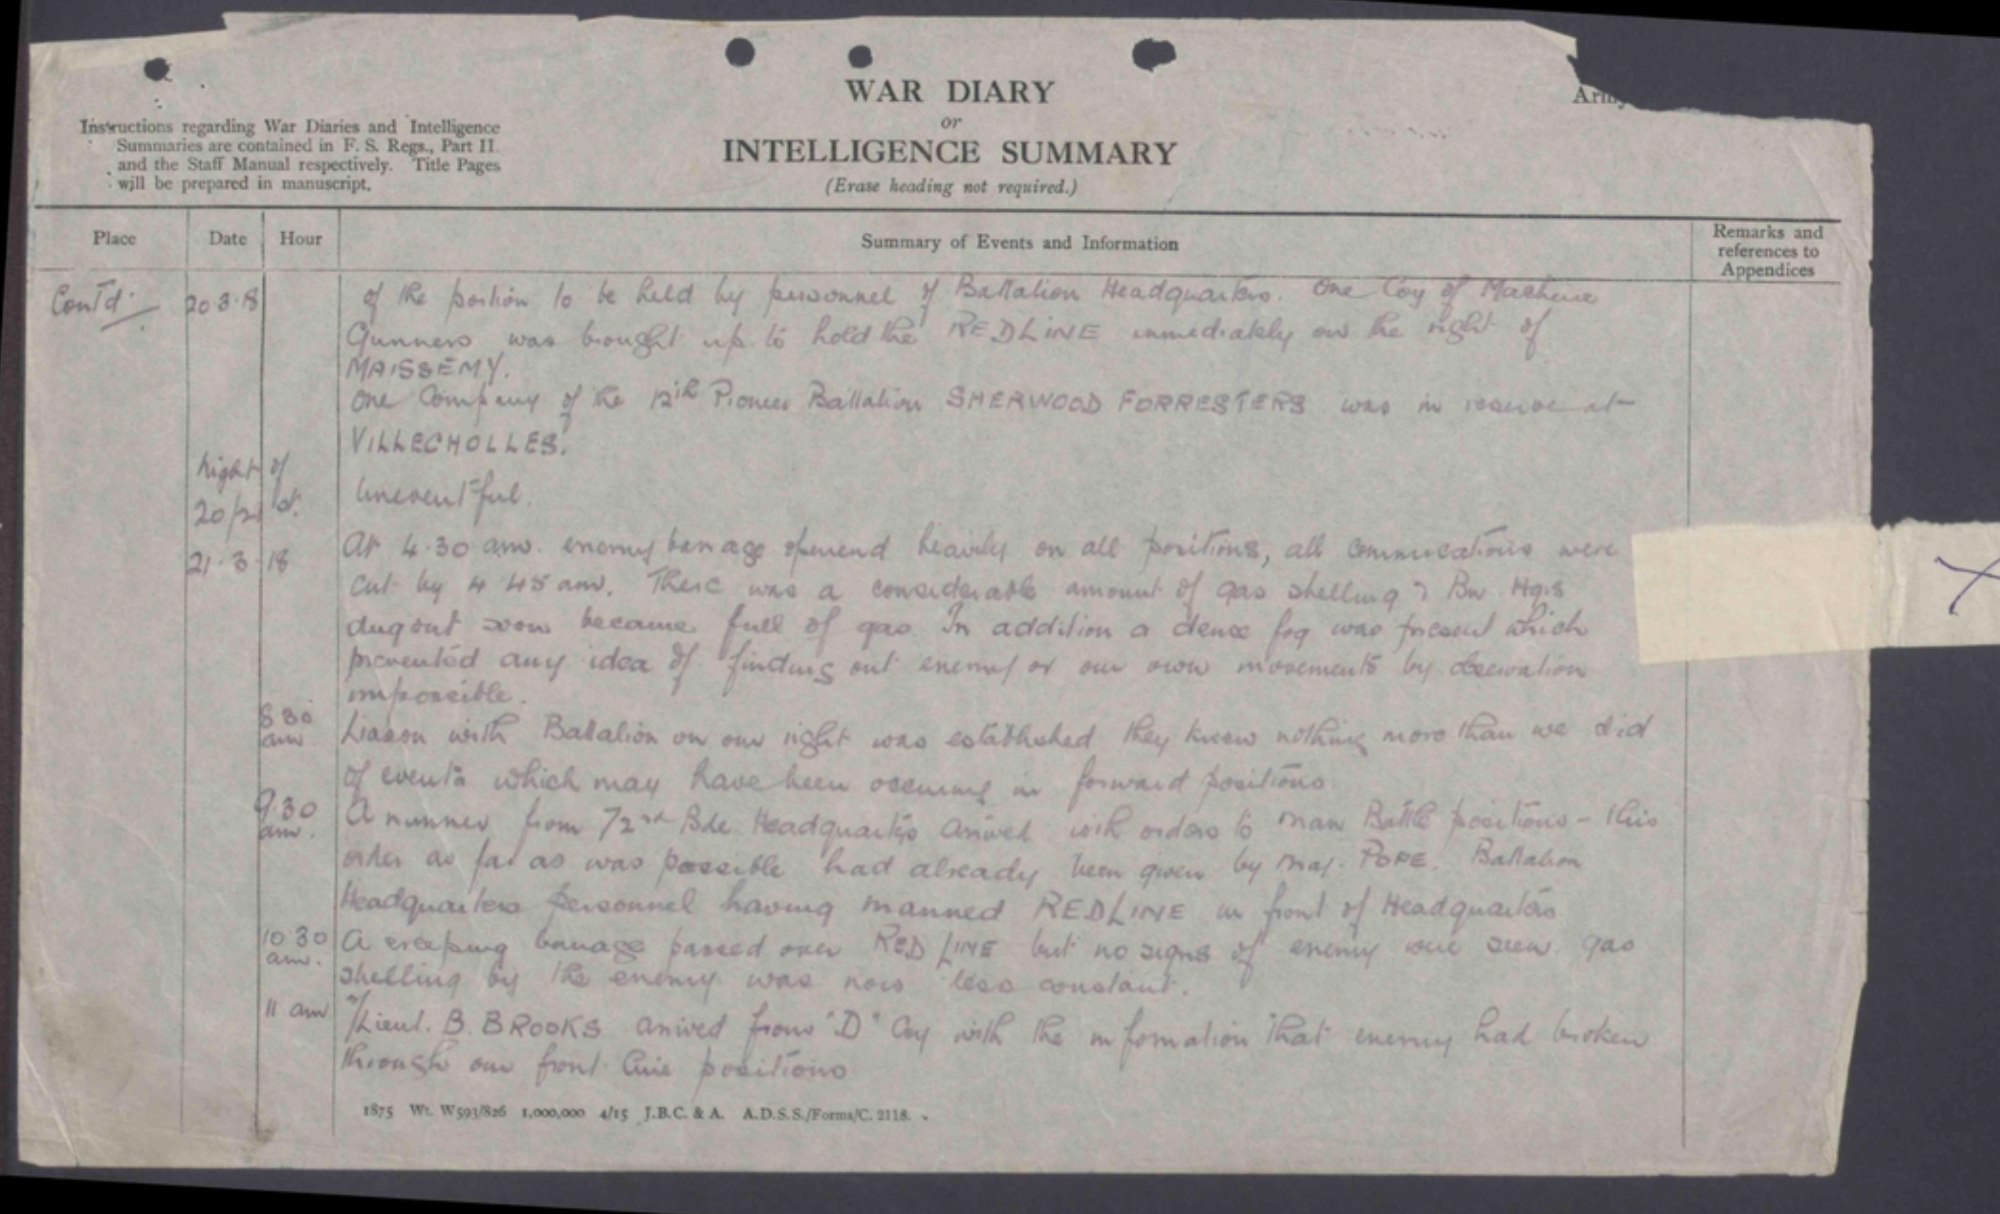 WAR DIARY
or
INTELLIGENCE SUMMARY
(Erase heading not required.)
Army
Instructions regarding War Diaries and Intelligence
Summaries are contained in F. S. Regs., Part II.
and the Staff Manual respectively. Title Pages
will be prepared in manuscript.
Place Date Hour Summary of Events and Information Remarks and references to Appendices
Cont'd. 20.3.18 of the portion to be held by personnel of Battalion Headquarters. One Coy of Machine
Gunners was brought up to hold the REDLINE immediately on the right of
MAISSEMY.
One Company of the 12th Pioneer Battalion SHERWOOD FORRESTERS was in reserve at
VILLECHOLLES.
Night of
20/21st. Uneventful.
21.3.18 At 4.30 am. enemy barrage opened heavily on all positions, all were
cut by 4 45 am. There was a considerable amount of gas shelling & Bn Hqrs
dugout soon became full of gas. In addition a dence fog was present which
prevented any idea of finding out enemy or our own movements by
impossible.
8 30 am Liason with Battalion on our right was established they knew nothing more than we did
of events which may have been occuring in forward positions
9.30 am. A runner from 72nd Bde. Headquarters arrived with orders to man Battle positions - this
order as far as was possible had already been given by Maj. POPE. Battalion
Headquarters personnel having manned REDLINE in front of Headquarters
10 30 am. A creeping barrage passed over RED LINE but no signs of enemy were seen. gas
shelling by the enemy was now less constant.
11 am 2/Lieut. B. BROOKS arrived from "D" Coy with the information that enemy had broken
through our front line positions
1875 Wt. W593/826 1,000,000 4/15 J.B.C. & A. A.D.S.S./Forms/C. 2118.